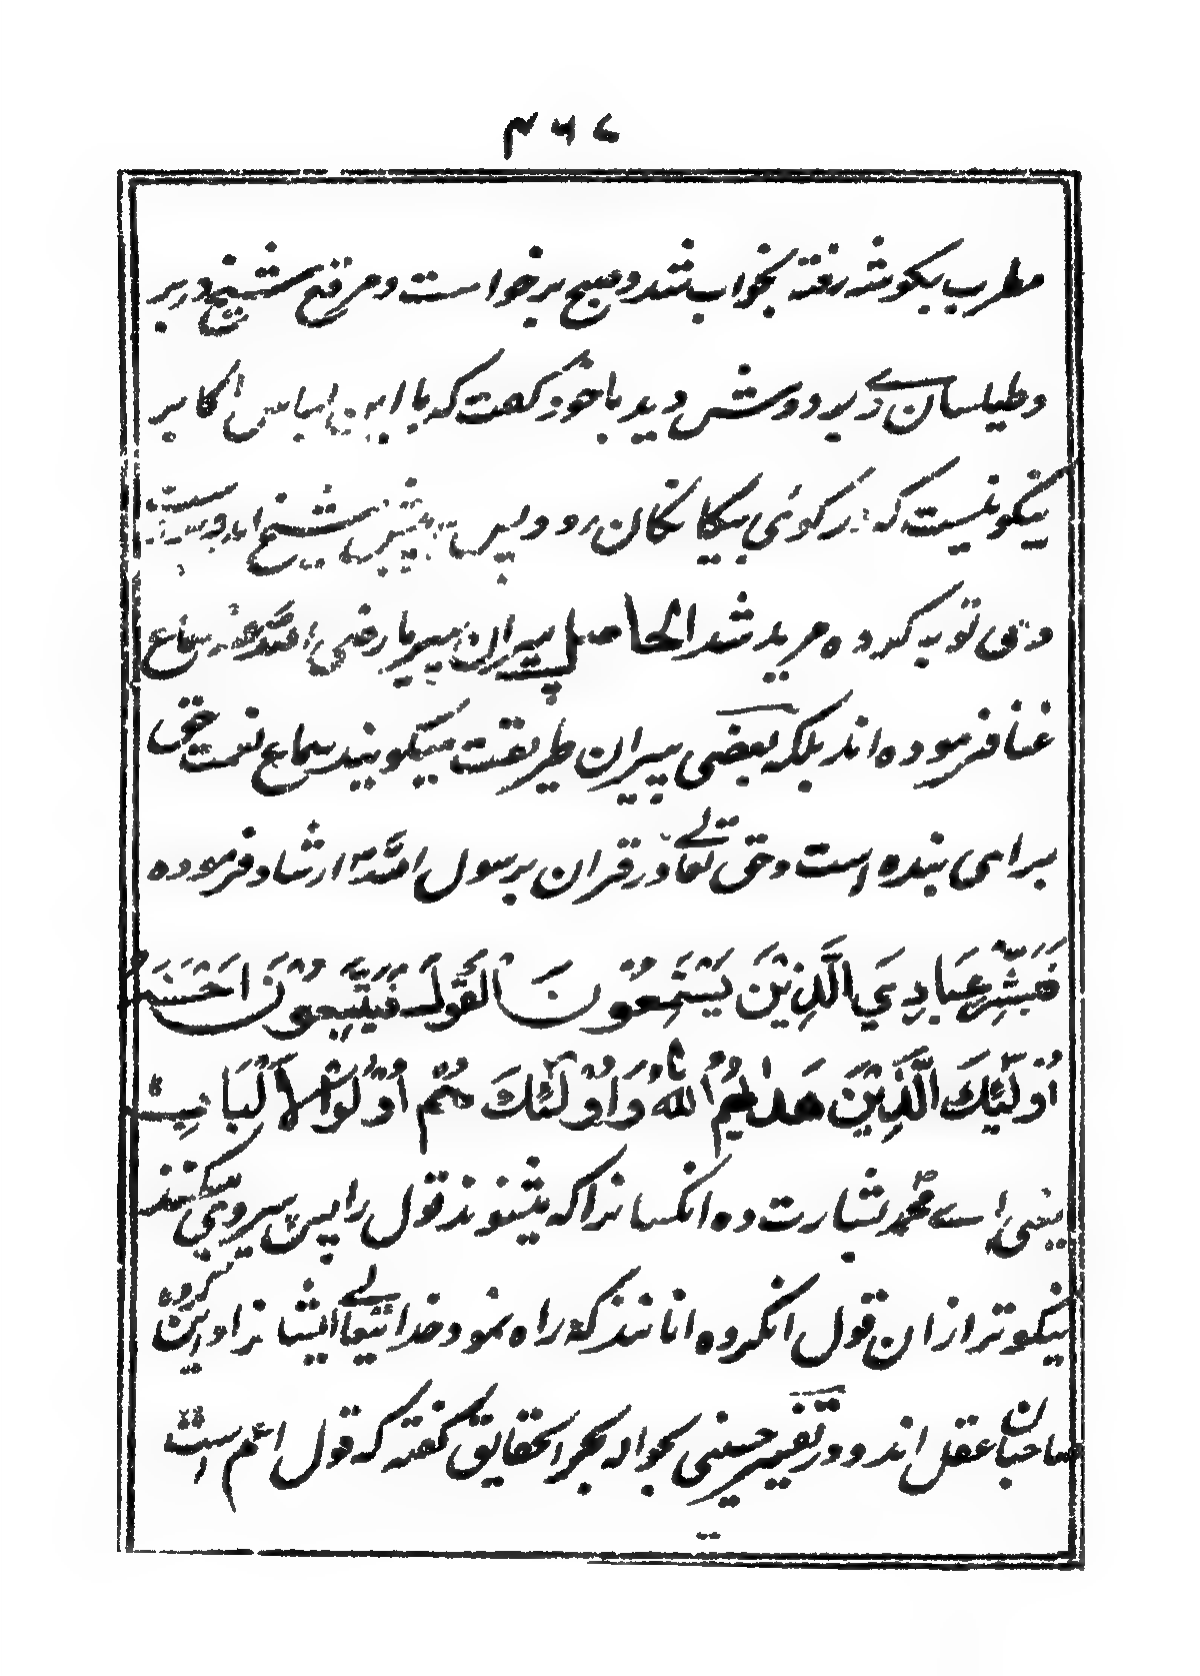 ۴۶۷
مطرب بگوشه رفته بخواب شد و صبح برخواست و مرقع شیخ در بر
و طیلسان وے بر دوش دید با خود گفت که با این لباس اکابر
نیکو نیست که در کوئی بیگانگان رود پس پیش شیخ
وی توبه کرده مرید شد الحاصل پیران میر ما رضی الله عنه سماع
غنا فرموده اند بلکه بعضی پیران طریقت میگویند سماع نعمت حق
برای بنده است و حق تعالے در قران برسول الله ارشاد فرموده
فَبَشِّرْ عِبَادِيَ الَّذِيْنَ يَسْتَمِعُوْنَ الْقَوْلَ فَيَتَّبِعُوْنَ اَحْسَنَهٗ
اُوْلٰئِكَ الَّذِيْنَ هَدٰىهُمُ اللّٰهُ وَاُوْلٰئِكَ هُمْ اُوْلُوا الْاَلْبَابِ
یعنی اے محمد بشارت ده انکسانرا که میشنوند قول را پس پیروی میکنند
نیکوتر ازان قول انگروه انانند که راه نمود خدا تعالے ایشانرا و این گروه
صاحبان عقل اند و در تفسیر حسینی بحواله بحر الحقایق گفته که قول اعم است